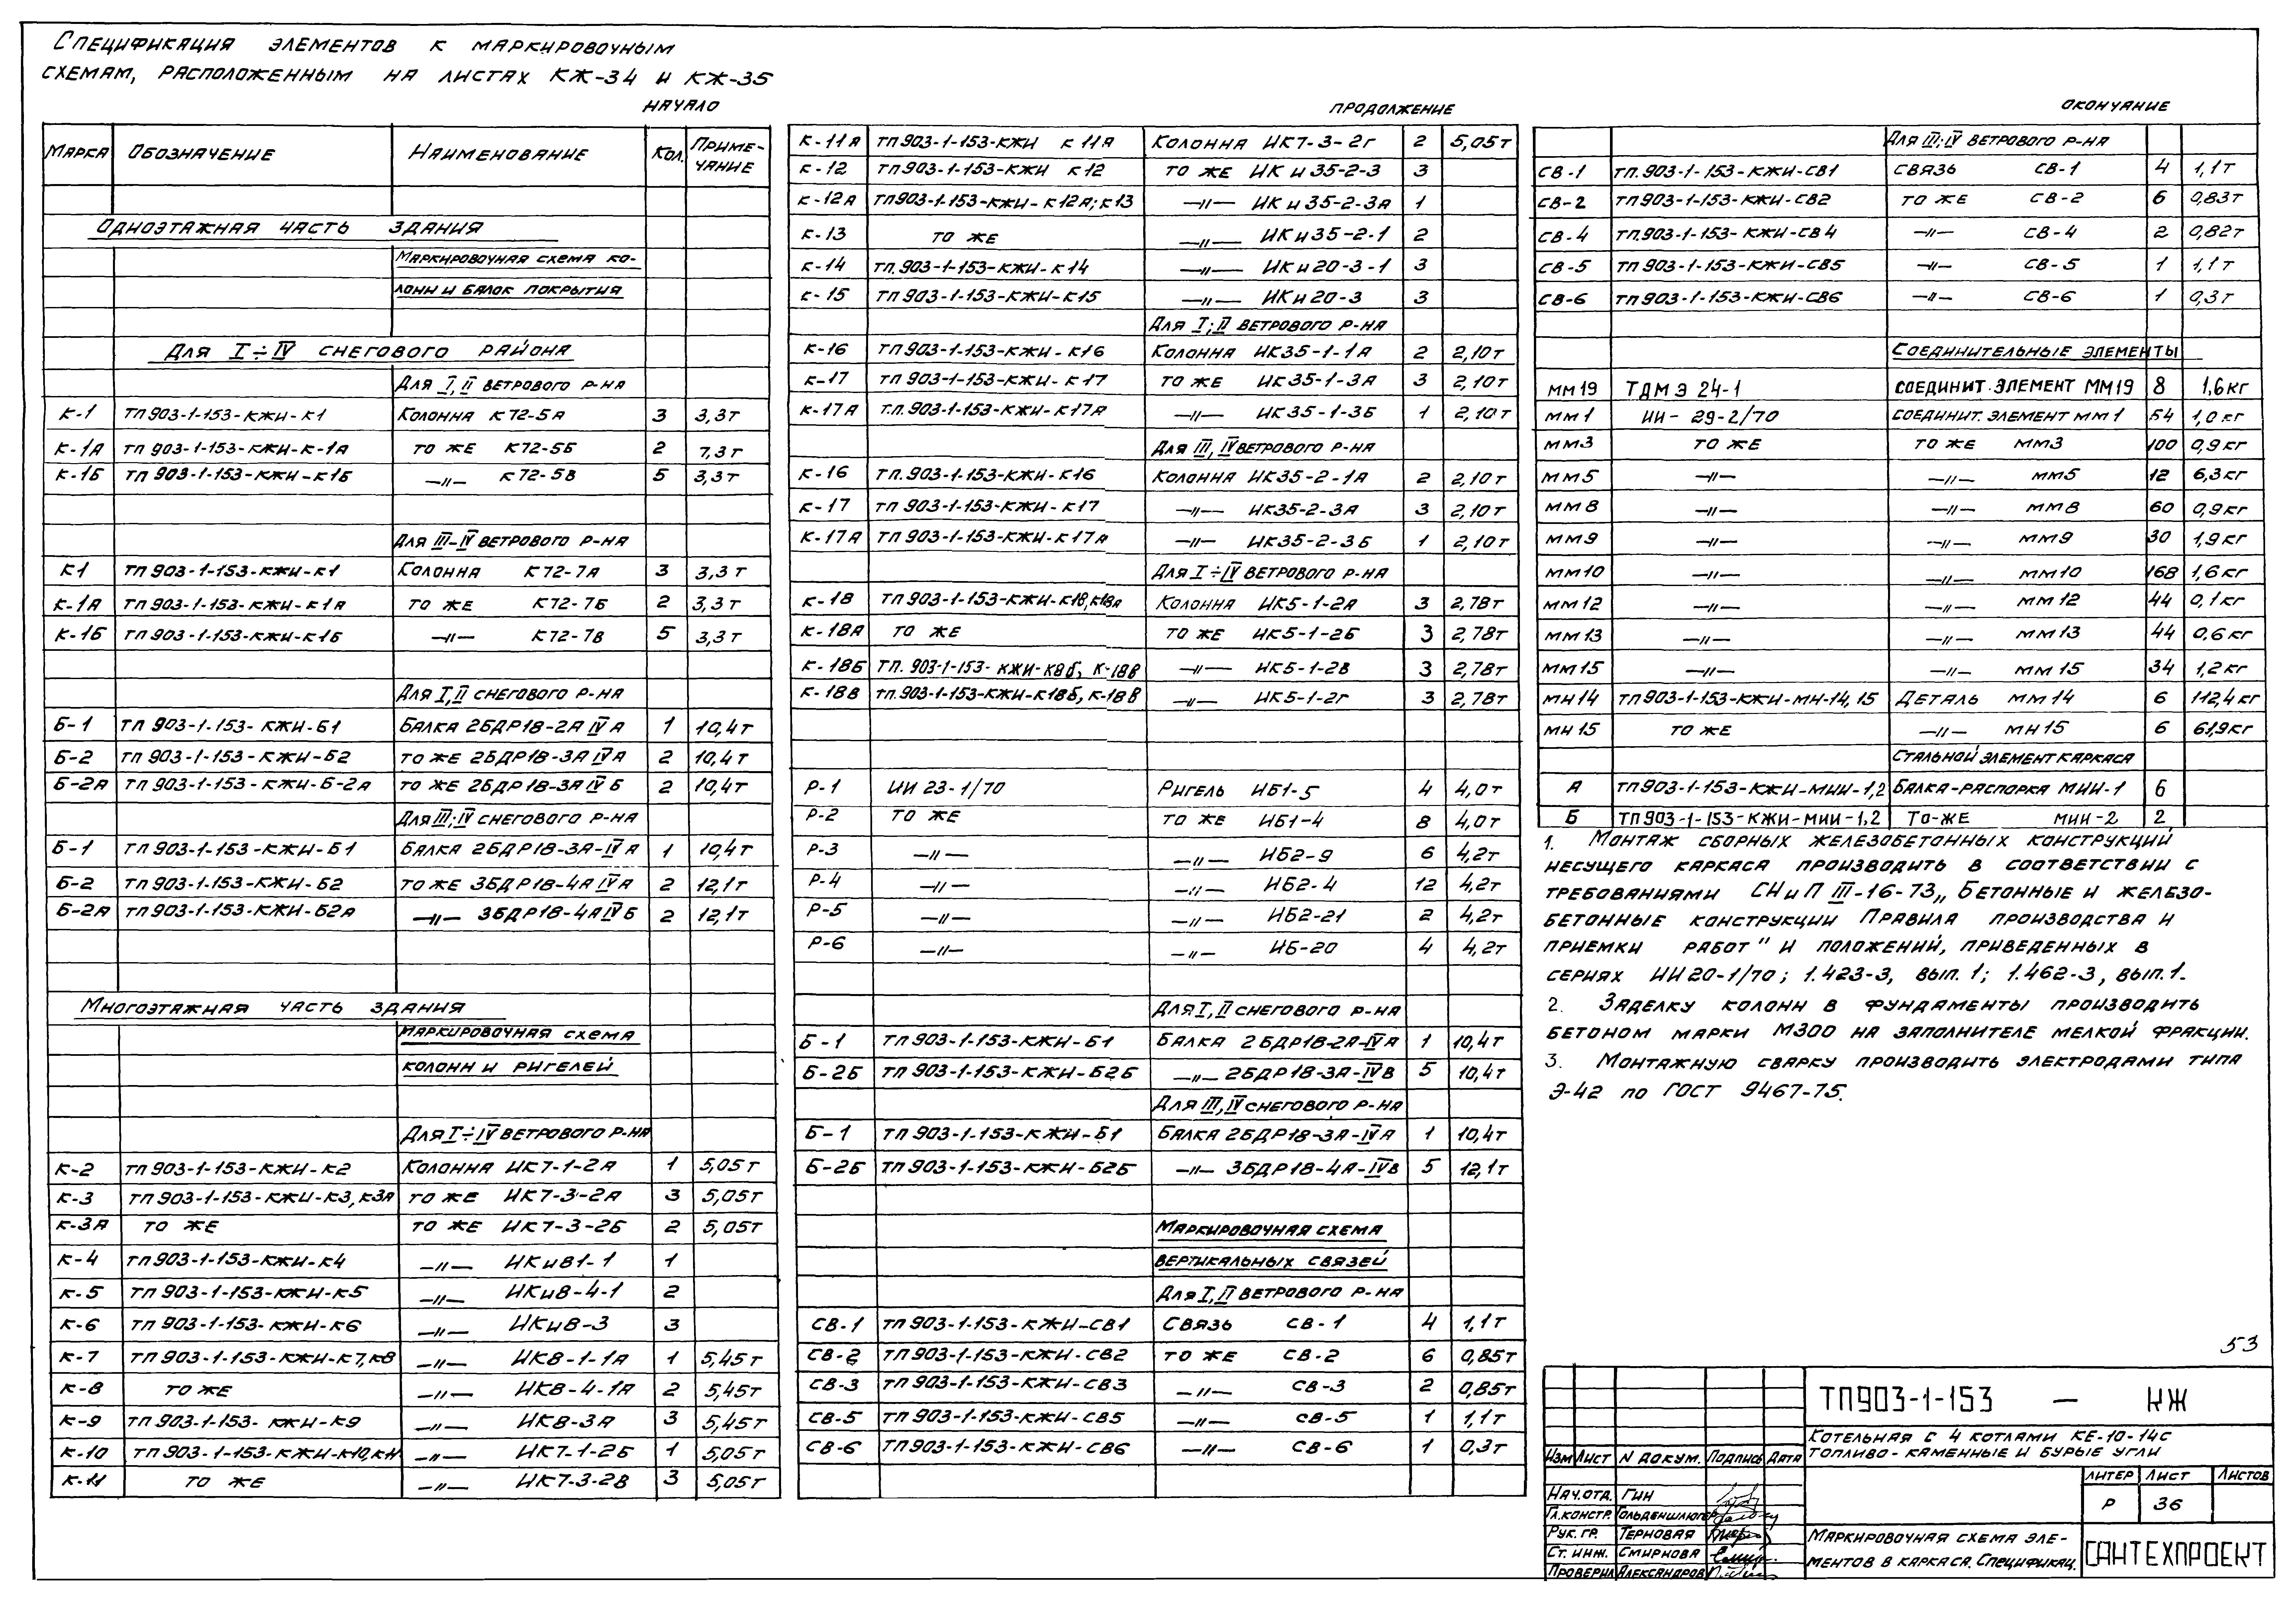 Спецификация элементов к маркировочным
схемам, расположенным на листах КЖ-34 и КЖ-35
начало
Марка Обозначение Наименование Кол. Приме-
чание
Одноэтажная часть здания
Маркировочная схема ко-
лонн и балок покрытия
Для I÷IV снегового района
Для I, II ветрового р-на
К-1 ТП 903-1-153-КЖИ-К1 Колонна К72-5А 3 3,3т
К-1А ТП 903-1-153-КЖИ-К-1А то же К72-5Б 2 7,3т
К-1Б ТП 903-1-153-КЖИ-К1Б —"— К72-5В 5 3,3т
Для III-IV ветрового р-на
К1 ТП 903-1-153-КЖИ-К1 Колонна К72-7А 3 3,3т
К-1А ТП 903-1-153-КЖИ-К1А то же К72-7Б 2 3,3т
К-1Б ТП 903-1-153-КЖИ-К1Б —"— К72-7В 5 3,3т
Для I, II снегового р-на
Б-1 ТП 903-1-153-КЖИ-Б1 Балка 2БДР18-2А IVА 1 10,4т
Б-2 ТП 903-1-153-КЖИ-Б2 то же 2БДР18-3А IVА 2 10,4т
Б-2А ТП 903-1-153-КЖИ-Б-2А то же 2БДР18-3А IVБ 2 10,4т
Для III; IV снегового р-на
Б-1 ТП 903-1-153-КЖИ-Б1 Балка 2БДР18-3А-IVА 1 10,4т
Б-2 ТП 903-1-153-КЖИ-Б2 то же 3БДР18-4А IVА 2 12,1т
Б-2А ТП 903-1-153-КЖИ-Б2А —"— 3БДР18-4А IVБ 2 12,1т
Многоэтажная часть здания
Маркировочная схема
колонн и ригелей
Для I÷IV ветрового р-на
К-2 ТП 903-1-153-КЖИ-К2 Колонна ИК7-1-2А 1 5,05т
К-3 ТП 903-1-153-КЖИ-К3, К3А то же ИК7-3-2А 3 5,05т
К-3А то же то же ИК7-3-2Б 2 5,05т
К-4 ТП 903-1-153-КЖИ-К4 —"— ИКи81-1 1
К-5 ТП 903-1-153-КЖИ-К5 —"— ИКи8-4-1 2
К-6 ТП 903-1-153-КЖИ-К6 —"— ИКи8-3 3
К-7 ТП 903-1-153-КЖИ-К7, К8 —"— ИК8-1-1А 1 5,45т
К-8 то же —"— ИК8-4-1А 2 5,45т
К-9 ТП 903-1-153-КЖИ-К9 —"— ИК8-3А 3 5,45т
К-10 ТП 903-1-153-КЖИ-К10, К11 —"— ИК7-1-2Б 1 5,05т
К-11 то же —"— ИК7-3-2В 3 5,05т
продолжение
К-11А ТП 903-1-153-КЖИ К11А Колонна ИК7-3-2Г 2 5,05т
К-12 ТП 903-1-153-КЖИ К12 то же ИКи35-2-3 3
К-12А ТП 903-1-153-КЖИ-К12А; К13 —"— ИКи35-2-3А 1
К-13 то же —"— ИКи35-2-1 2
К-14 ТП. 903-1-153-КЖИ-К14 —"— ИКи20-3-1 3
К-15 ТП 903-1-153-КЖИ-К15 —"— ИКи20-3 3
Для I; II ветрового р-на
К-16 ТП 903-1-153-КЖИ-К16 Колонна ИК35-1-1А 2 2,10т
К-17 ТП 903-1-153-КЖИ-К17 то же ИК35-1-3А 3 2,10т
К-17А Т.П. 903-1-153-КЖИ-К17А —"— ИК35-1-3Б 1 2,10т
Для III, IV ветрового р-на
К-16 ТП. 903-1-153-КЖИ-К16 Колонна ИК35-2-1А 2 2,10т
К-17 ТП 903-1-153-КЖИ-К17 —"— ИК35-2-3А 3 2,10т
К-17А ТП 903-1-153-КЖИ-К17А —"— ИК35-2-3Б 1 2,10т
Для I÷IV ветрового р-на
К-18 ТП 903-1-153-КЖИ-К18, К18А Колонна ИК5-1-2А 3 2,78т
К-18А то же то же ИК5-1-2Б 3 2,78т
К-18Б ТП. 903-1-153-КЖИ-К8б, К-18В —"— ИК5-1-2В 3 2,78т
К-18В ТП. 903-1-153-КЖИ-К18б, К-18В —"— ИК5-1-2Г 3 2,78т
Р-1 ИИ 23-1/70 Ригель ИБ1-5 4 4,0т
Р-2 то же то же ИБ1-4 8 4,0т
Р-3 —"— —"— ИБ2-9 6 4,2т
Р-4 —"— —"— ИБ2-4 12 4,2т
Р-5 —"— —"— ИБ2-21 2 4,2т
Р-6 —"— —"— ИБ-20 4 4,2т
Для I, II снегового р-на
Б-1 ТП 903-1-153-КЖИ-Б1 Балка 2БДР18-2А-IVА 1 10,4т
Б-2Б ТП 903-1-153-КЖИ-Б2Б —"— 2БДР18-3А-IVВ 5 10,4т
Для III, IV снегового р-на
Б-1 ТП 903-1-153-КЖИ-Б1 Балка 2БДР18-3А-IVА 1 10,4т
Б-2Б ТП 903-1-153-КЖИ-Б2Б —"— 3БДР18-4А-IVВ 5 12,1т
Маркировочная схема
вертикальных связей
Для I, II ветрового р-на
СВ-1 ТП 903-1-153-КЖИ-СВ1 Связь СВ-1 4 1,1т
СВ-2 ТП 903-1-153-КЖИ-СВ2 то же СВ-2 6 0,85т
СВ-3 ТП 903-1-153-КЖИ-СВ3 —"— СВ-3 2 0,85т
СВ-5 ТП 903-1-153-КЖИ-СВ5 —"— СВ-5 1 1,1т
СВ-6 ТП 903-1-153-КЖИ-СВ6 —"— СВ-6 1 0,3т
окончание
Для III; IV ветрового р-на
СВ-1 ТП. 903-1-153-КЖИ-СВ1 связь СВ-1 4 1,1т
СВ-2 ТП 903-1-153-КЖИ-СВ2 то же СВ-2 6 0,83т
СВ-4 ТП. 903-1-153-КЖИ-СВ4 —"— СВ-4 2 0,82т
СВ-5 ТП 903-1-153-КЖИ-СВ5 —"— СВ-5 1 1,1т
СВ-6 ТП 903-1-153-КЖИ-СВ6 —"— СВ-6 1 0,3т
Соединительные элементы
ММ19 ТДМ Э 24-1 соединит. элемент ММ19 8 1,6кг
ММ1 ИИ-29-2/70 соединит. элемент ММ1 54 1,0кг
ММ3 то же то же ММ3 100 0,9кг
ММ5 —"— —"— ММ5 12 6,3кг
ММ8 —"— —"— ММ8 60 0,9кг
ММ9 —"— —"— ММ9 30 1,9кг
ММ10 —"— —"— ММ10 168 1,6кг
ММ12 —"— —"— ММ12 44 0,1кг
ММ13 —"— —"— ММ13 44 0,6кг
ММ15 —"— —"— ММ15 34 1,2кг
МН14 ТП 903-1-153-КЖИ-МН-14, 15 Деталь ММ14 6 112,4кг
МН15 то же —"— МН15 6 61,9кг
Стальной элемент каркаса
А ТП 903-1-153-КЖИ-МИИ-1,2 Балка-распорка МИИ-1 6
Б ТП 903-1-153-КЖИ-МИИ-1,2 То-же МИИ-2 2
1. Монтаж сборных железобетонных конструкций
несущего каркаса производить в соответствии с
требованиями СНиП III-16-73 „Бетонные и железо-
бетонные конструкции Правила производства и
приемки работ" и положений, приведенных в
сериях ИИ20-1/70; 1.423-3, вып. 1; 1.462-3, вып. 1.
2. Заделку колонн в фундаменты производить
бетоном марки М300 на заполнителе мелкой фракции.
3. Монтажную сварку производить электродами типа
Э-42 по ГОСТ 9467-75.
53
ТП903-1-153 — КЖ
Котельная с 4 котлами КЕ-10-14с
топливо-каменные и бурые угли
Изм Лист N докум. Подпись Дата
Литер Лист Листов
Р 36
Нач. отд. Гин
Гл. констр. Гольденшлюгер
Рук. гр. Терновая
Ст. инж. Смирнова
Проверил Александров
Маркировочная схема эле-
ментов в каркаса. Спецификац.
САНТЕХПРОЕКТ